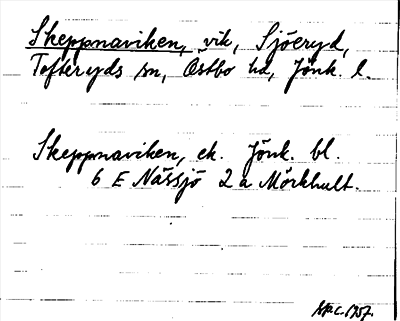 Skeppnaviken, vik, Sjöeryd,
Tofteryds sn, Östbo hd, Jönk. l.
Skeppnaviken, ek. Jönk. bl.
6 E Nässjö 2 a Mörkhult.
1957.